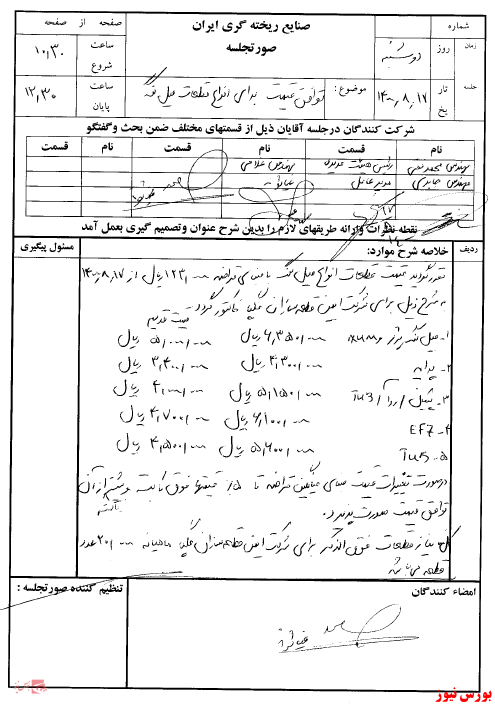 صنایع ریخته گری ایران
صورتجلسه
شماره
صفحه از صفحه
زمان
روز
دوشنبه
ساعت
شروع
۱۰,۳۰
جلسه
تاریخ
۱۴۰۰,۸,۱۷
موضوع:
توافق قیمت برای انواع قطعات میل لنگ
ساعت
پایان
۱۲,۳۰
شرکت کنندگان درجلسه آقایان ذیل از قسمتهای مختلف ضمن بحث وگفتگو
نام قسمت نام قسمت نام قسمت
مهندس رئیس هیئت مدیره مهندس غلامی
مهندس صابری مدیر عامل
نقطه نظرات وارائه طریقهای لازم را بدین شرح عنوان وتصمیم گیری بعمل آمد
ردیف خلاصه شرح موارد: مسئول پیگیری
مقرر گردید قیمت قطعات انواع میل لنگ با مبنای قراضه ۱۲۳,۰۰۰ ریال از ۱۴۰۰,۸,۱۷
به شرح ذیل برای شرکت ایمن قطعه سازان فاکتور گردد.
قیمت قدیم
۱- میل لنگ پژو ۶,۳۵۰,۰۰۰ ریال ۵,۱۰۰,۰۰۰ ریال
۲- پراید ۴,۳۰۰,۰۰۰ ریال ۳,۴۰۰,۰۰۰ ریال
۳- TU3 ۵,۱۵۰,۰۰۰ ریال ۴,۱۰۰,۰۰۰ ریال
۴- EF7 ۶,۱۰۰,۰۰۰ ریال ۴,۷۰۰,۰۰۰ ریال
۵- TU5 ۵,۶۰۰,۰۰۰ ریال ۴,۵۰۰,۰۰۰ ریال
درصورت تغییرات قیمت مبنای میانگین قراضه تا ۵٪ قیمتهای فوق ثابت و بیشتر از آن
توافق قیمت صورت پذیرد.
نیاز قطعات فوق الذکر برای شرکت ایمن قطعه سازان ماهیانه ۲۰,۰۰۰ عدد
قطعه می باشد
امضاء کنندگان
تنظیم کننده صورتجلسه :
بورس نیوز